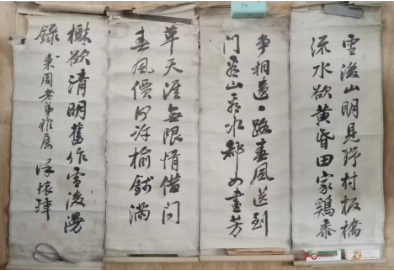 雪後山明見野村板橋
流水欲黃昏田家鷄黍
争相邀一路春風送到
門看山看水都如畫芳
草天涯無限情借問
春風價何許榆錢滿
樹欲清明舊作雪後漫
錄
東周老弟雅屬